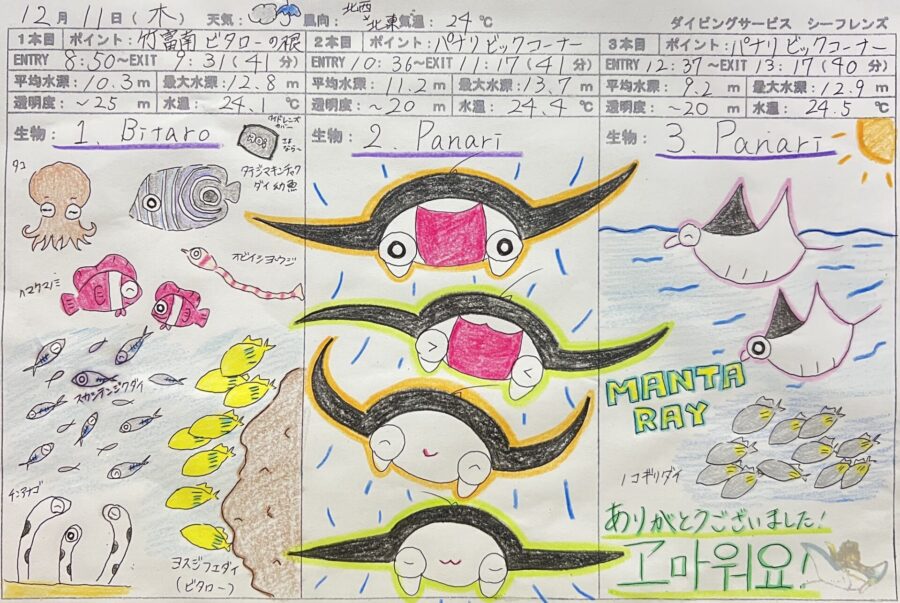 12月 11日(木) 天気: 風向: 北西 北東 気温: 24℃ ダイビングサービス シーフレンズ
1本目 ポイント: 竹富南 ビタローの根 2本目 ポイント: パナリ ビックコーナー 3本目 ポイント: パナリ ビックコーナー
ENTRY 8:50~EXIT 9:31(41分) ENTRY 10:36~EXIT 11:17(41分) ENTRY 12:37~EXIT 13:17(40分)
平均水深: 10.3m 最大水深: 12.8m 平均水深: 11.2m 最大水深: 13.7m 平均水深: 9.2m 最大水深: 12.9m
透明度: ~25m 水温: 24.1℃ 透明度: ~20m 水温: 24.4℃ 透明度: ~20m 水温: 24.5℃
生物: 1. Bitaro 生物: 2. Panari 生物: 3. Panari
ワイドレンズ
カバー
さよ
なら〜
タコ
タテジマキンチャク
ダイ幼魚
オビイシヨウジ
ハマクマノミ
スカシテンジクダイ
MANTA
RAY
ノコギリダイ
チンアナゴ
ヨスジフエダイ
(ビタロー)
ありがとうございました!
고마워요!